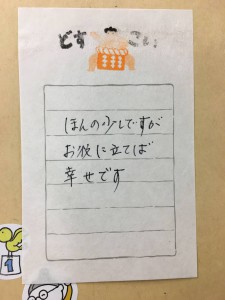 どすこい
ほんの少しですが
お役に立てば
幸せです
1